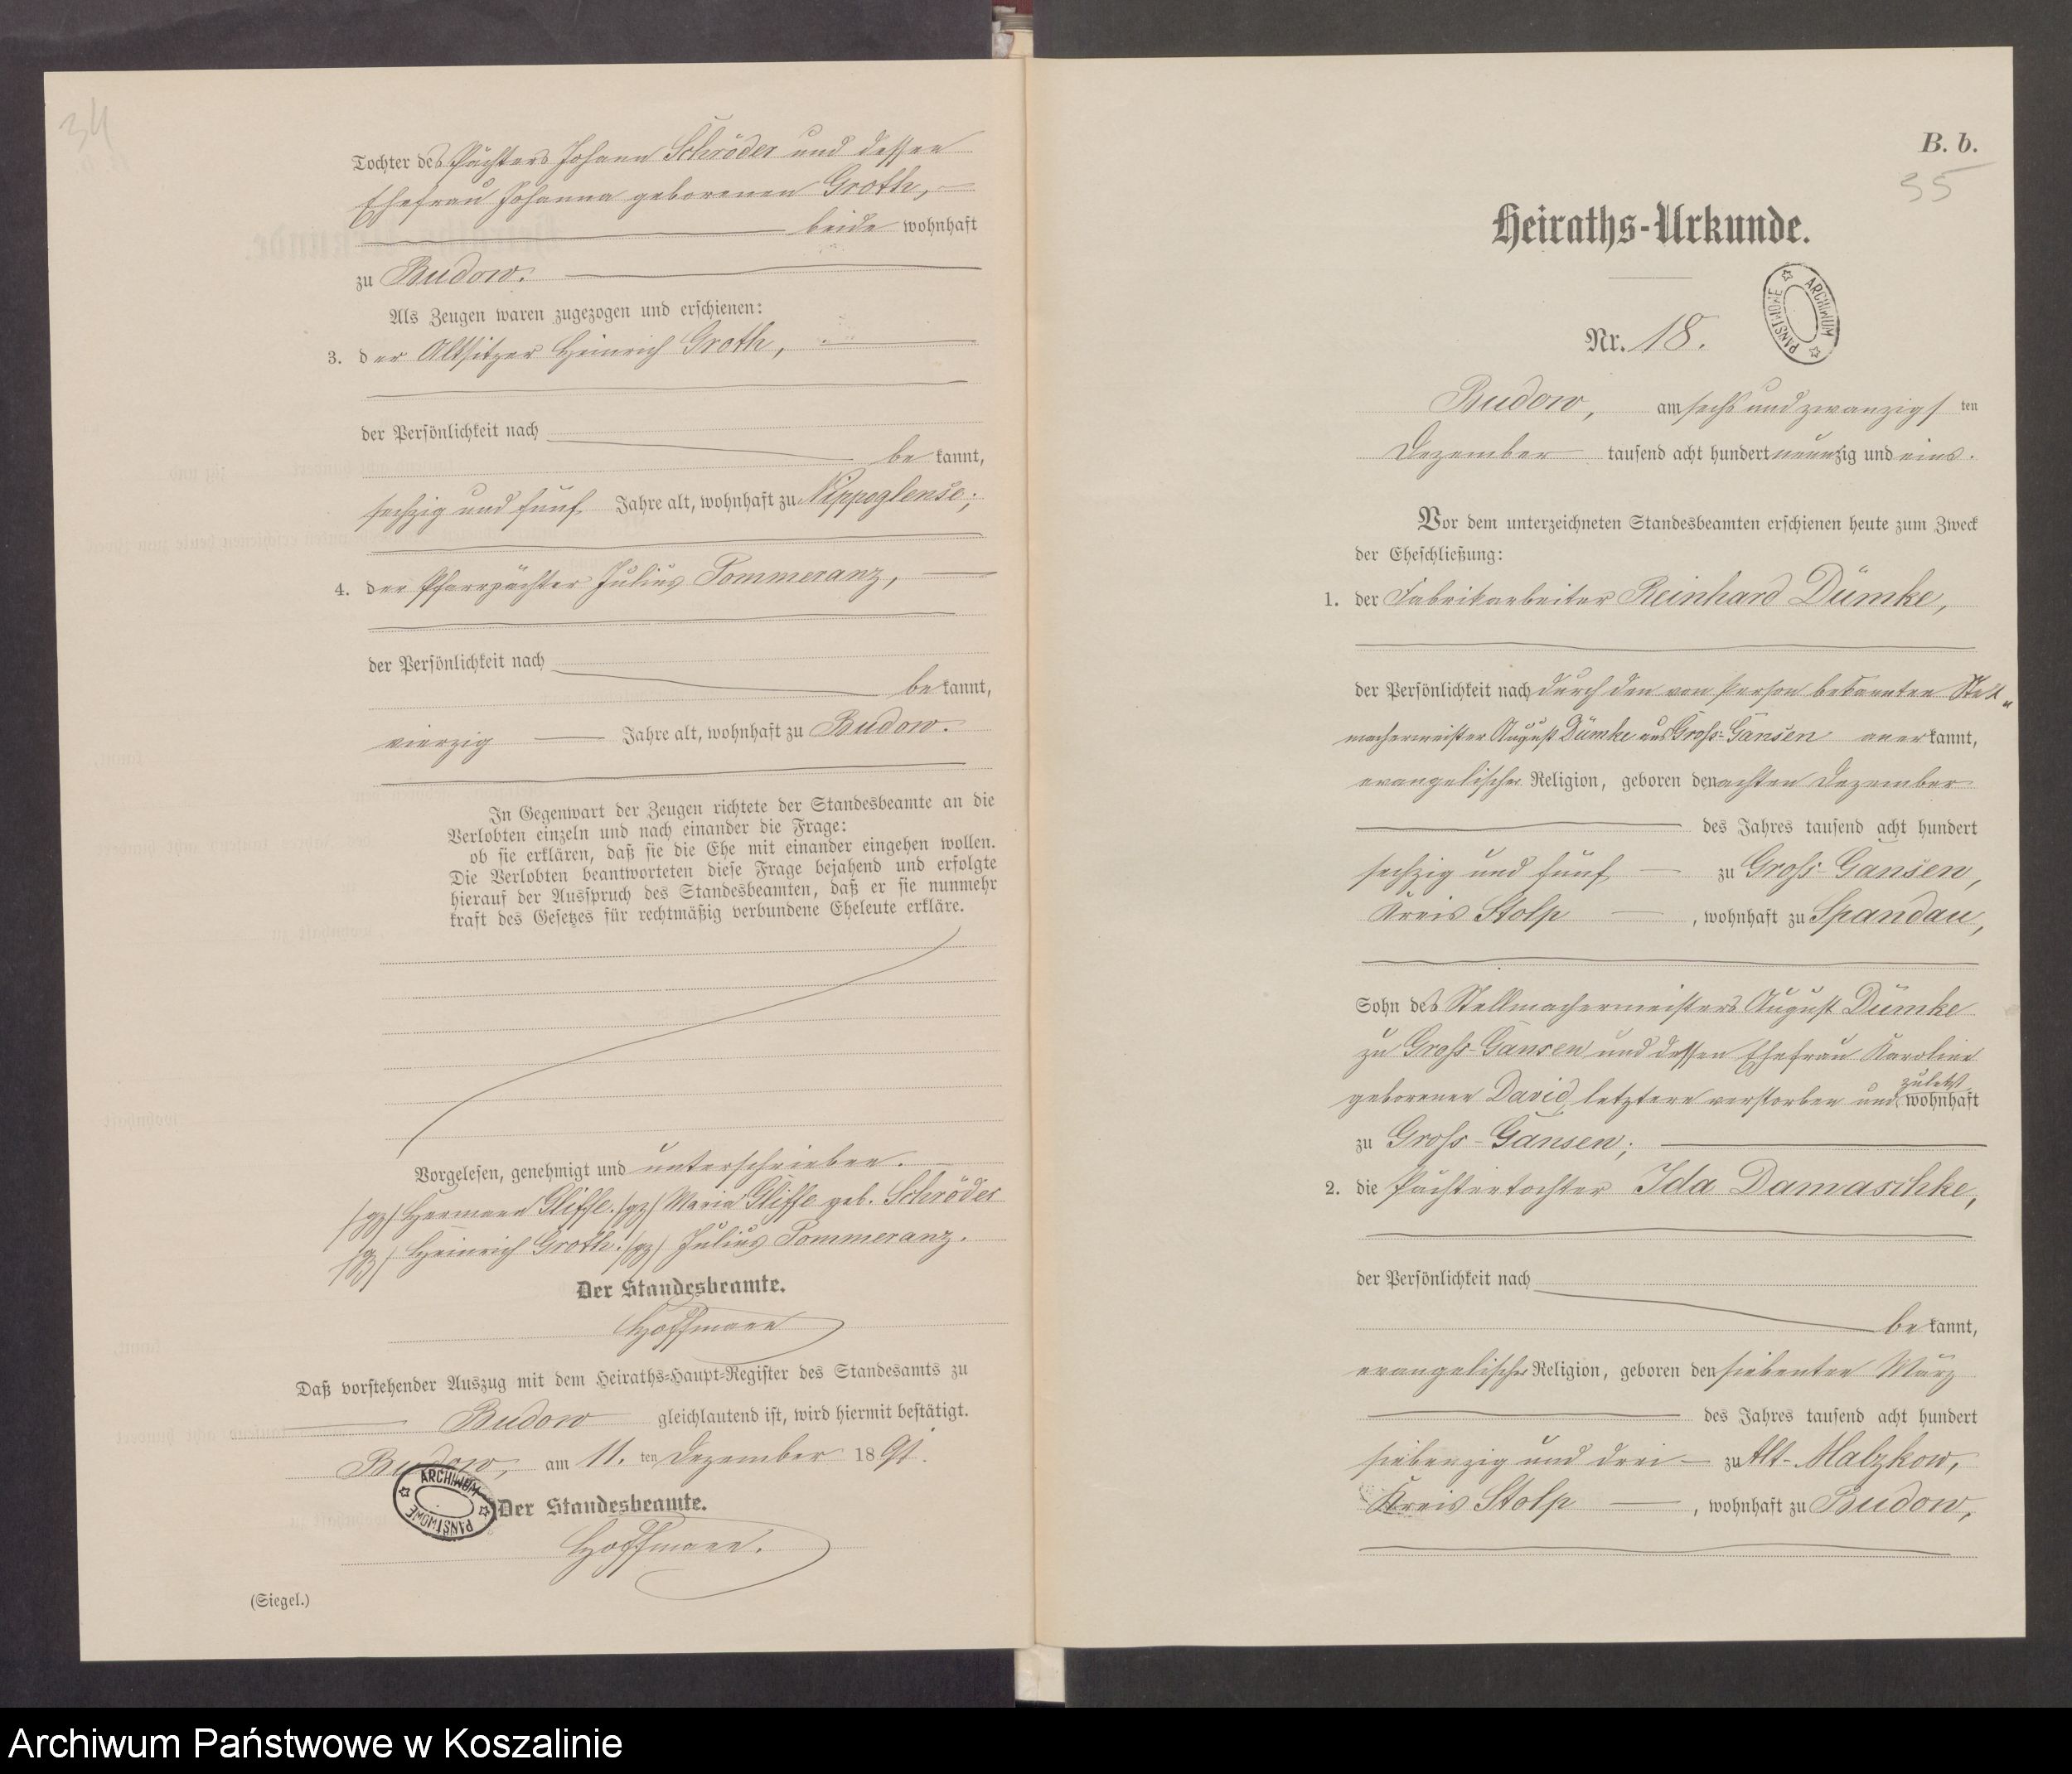 34
Tochter des Pächters Johann Schröder und dessen
Ehefrau Johanna geborenen Groth,
beide wohnhaft
zu Budow.
Als Zeugen waren zugezogen und erschienen:
3. der Altsitzer Heinrich Groth,
der Persönlichkeit nach
be kannt,
sechzig und fünf Jahre alt, wohnhaft zu Nippoglense;
4. der Pfarrpächter Julius Pommeranz,
der Persönlichkeit nach
be kannt,
vierzig Jahre alt, wohnhaft zu Budow.
In Gegenwart der Zeugen richtete der Standesbeamte an die
Verlobten einzeln und nach einander die Frage:
ob sie erklären, daß sie die Ehe mit einander eingehen wollen.
Die Verlobten beantworteten diese Frage bejahend und erfolgte
hierauf der Ausspruch des Standesbeamten, daß er sie nunmehr
kraft des Gesetzes für rechtmäßig verbundene Eheleute erkläre.
Vorgelesen, genehmigt und unterschrieben.
/gz/ Hermann Gliffe. /gz/ Maria Gliffe geb. Schröder
/gz/ Heinrich Groth. /gz/ Julius Pommeranz.
Der Standesbeamte.
Hoffmann
Daß vorstehender Auszug mit dem Heiraths-Haupt-Register des Standesamts zu
Budow gleichlautend ist, wird hiermit bestätigt.
Budow, am 11. ten Dezember 1891.
ARCHIWUM PAŃSTWOWE
Der Standesbeamte.
Hoffmann.
(Siegel.)
B. b.
35
Heiraths-Urkunde.
ARCHIWUM PAŃSTWOWE
Nr. 18.
Budow, am sechs und zwanzigs ten
Dezember tausend acht hundert neunzig und eins.
Vor dem unterzeichneten Standesbeamten erschienen heute zum Zweck
der Eheschließung:
1. der Fabrikarbeiter Reinhard Dümke,
der Persönlichkeit nach durch den von Person bekannten Stell-
machermeister August Dümke aus Groß-Gansen anerkannt,
evangelischer Religion, geboren den achten Dezember
des Jahres tausend acht hundert
sechzig und fünf zu Groß-Gansen,
Kreis Stolp, wohnhaft zu Spandau,
Sohn des Stellmachermeisters August Dümke
zu Groß-Gansen und dessen Ehefrau Karoline
geborener David, letztere verstorben und zuletzt wohnhaft
zu Groß-Gansen;
2. die Pächtertochter Ida Damaschke,
der Persönlichkeit nach
be kannt,
evangelischer Religion, geboren den siebenten März
des Jahres tausend acht hundert
siebenzig und drei zu Alt-Malzkow,
Kreis Stolp, wohnhaft zu Budow,
Archiwum Państwowe w Koszalinie